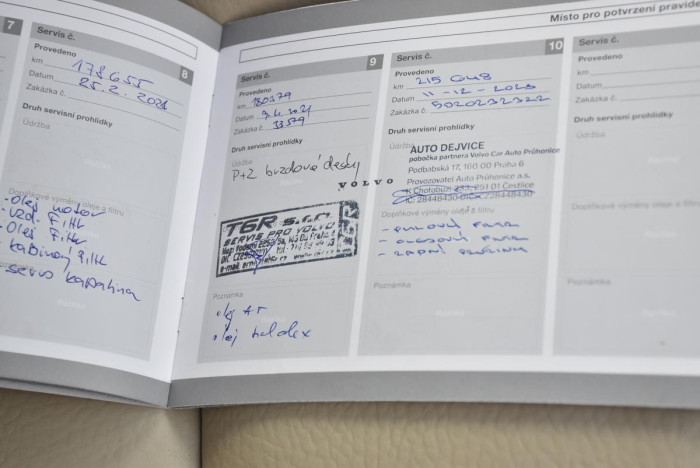 Místo pro potvrzení pravide
7
Servis č.
8
Provedeno
km 178655
Datum 25.2.2021
Zakázka č.
Druh servisní prohlídky
Údržba
Doplňkové výměny oleje a filtru
-olej motor
-vzd. Filtr
-olej Filtr
-kabinový filtr
-servo kapalina
Servis č.
9
Provedeno
km 180379
Datum 9.4.2021
Zakázka č. 33579
Druh servisní prohlídky
Údržba
P+Z brzdové desky
VOLVO
T6R s.r.o.
SERVIS PRO VOLVO
Poznámka
olej AT
olej haldex
Servis č.
10
Provedeno
km 215 048
Datum 11-12-2023
Zakázka č. 5020232322
Druh servisní prohlídky
Údržba
AUTO DEJVICE
pobočka partnera Volvo Car Auto Průhonice
Podbabská 17, 160 00 Praha 6
Provozovatel Auto Průhonice a.s.
K Chotobuzi 333, 251 01 Čestlice
IČ: 28448430
Doplňkové výměny oleje a filtru
Poznámka
Servis č.
Provedeno
km
Datum
Zakázka č.
Druh servisní prohlídky
Údržba
Doplňkové výměny oleje a filtru
Poznámka